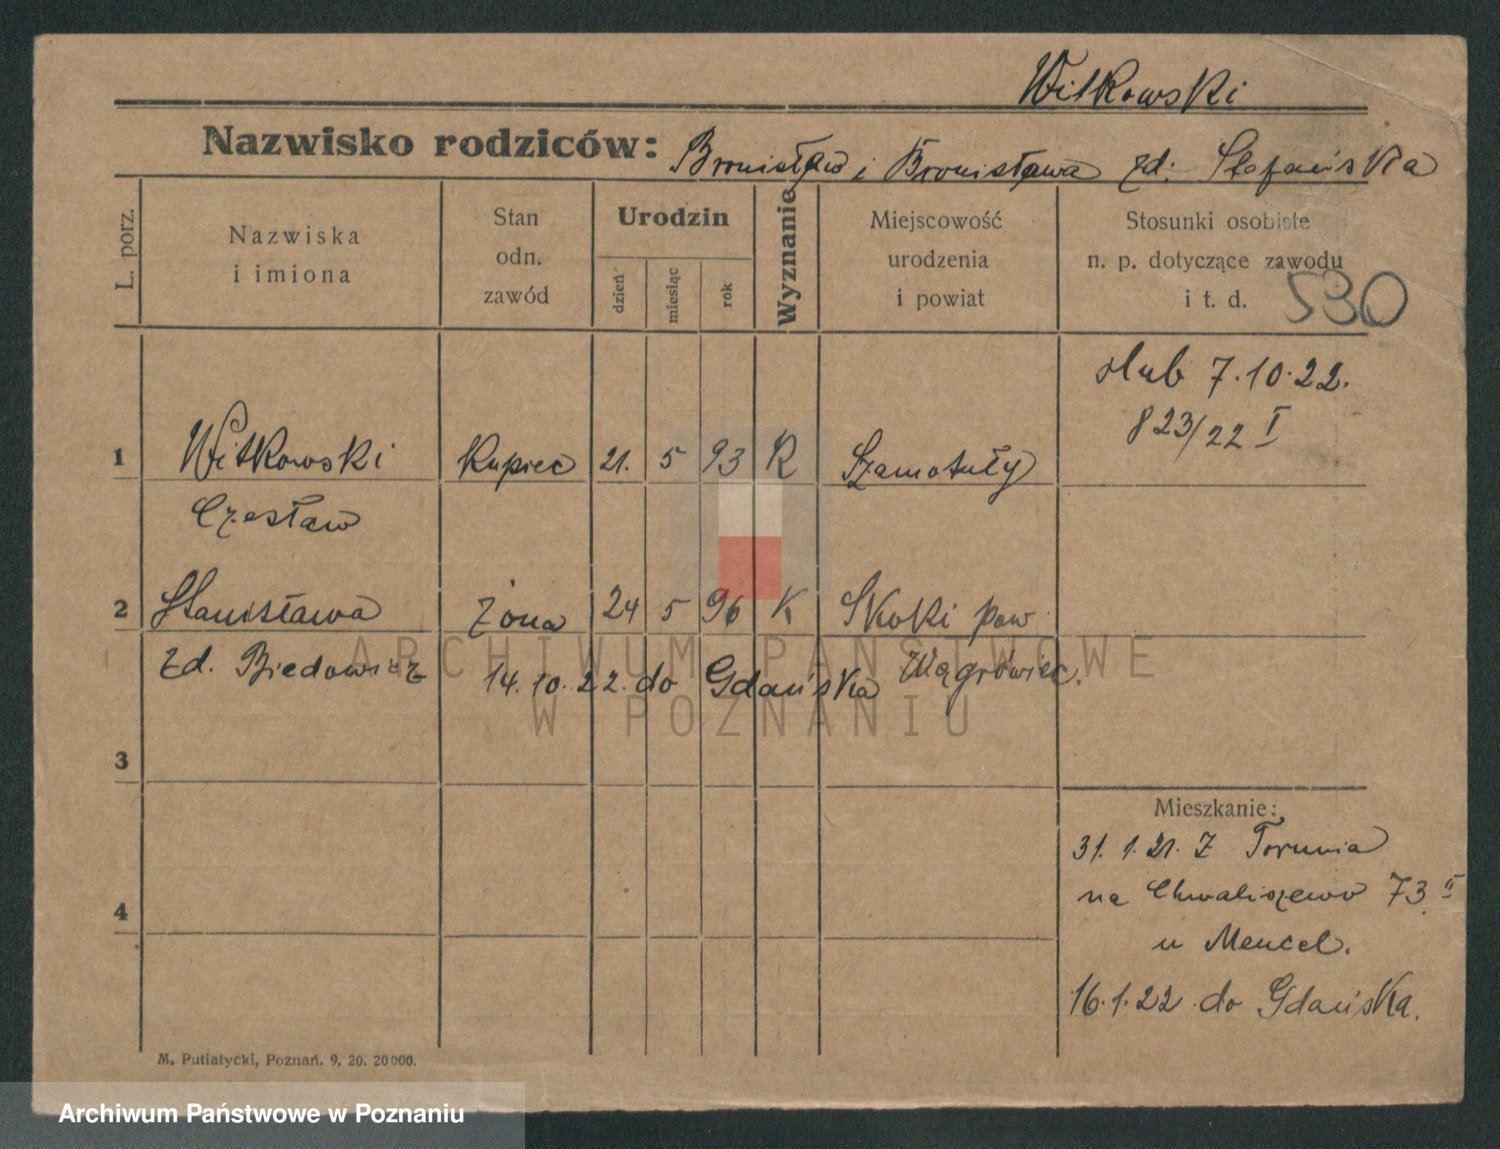 Witkowski
Nazwisko rodziców: Bronisław i Bronisława zd. Stefańska
L. porz.
Nazwiska
i imiona
Stan
odn.
zawód
Urodzin
dzień
miesiąc
rok
Wyznanie
Miejscowość
urodzenia
i powiat
Stosunki osobiste
n. p. dotyczące zawodu
i t. d.
530
ślub 7.10.22.
823/22 I
1 Witkowski Kupiec 21. 5 93 R Szamotuły
Czesław
2 Stanisława żona 24 5 96 K Skoki pow.
zd. Biedowicz 14.10.22. do Gdańska Wągrówiec.
3
4
Mieszkanie:
31.1.21. Z Torunia
na Chwaliszewo 73 II
u Mencel.
16.1.22 do Gdańska.
M. Putiatycki, Poznań. 9. 20. 20000.
ARCHIWUM PAŃSTWOWE
W POZNANIU
Archiwum Państwowe w Poznaniu